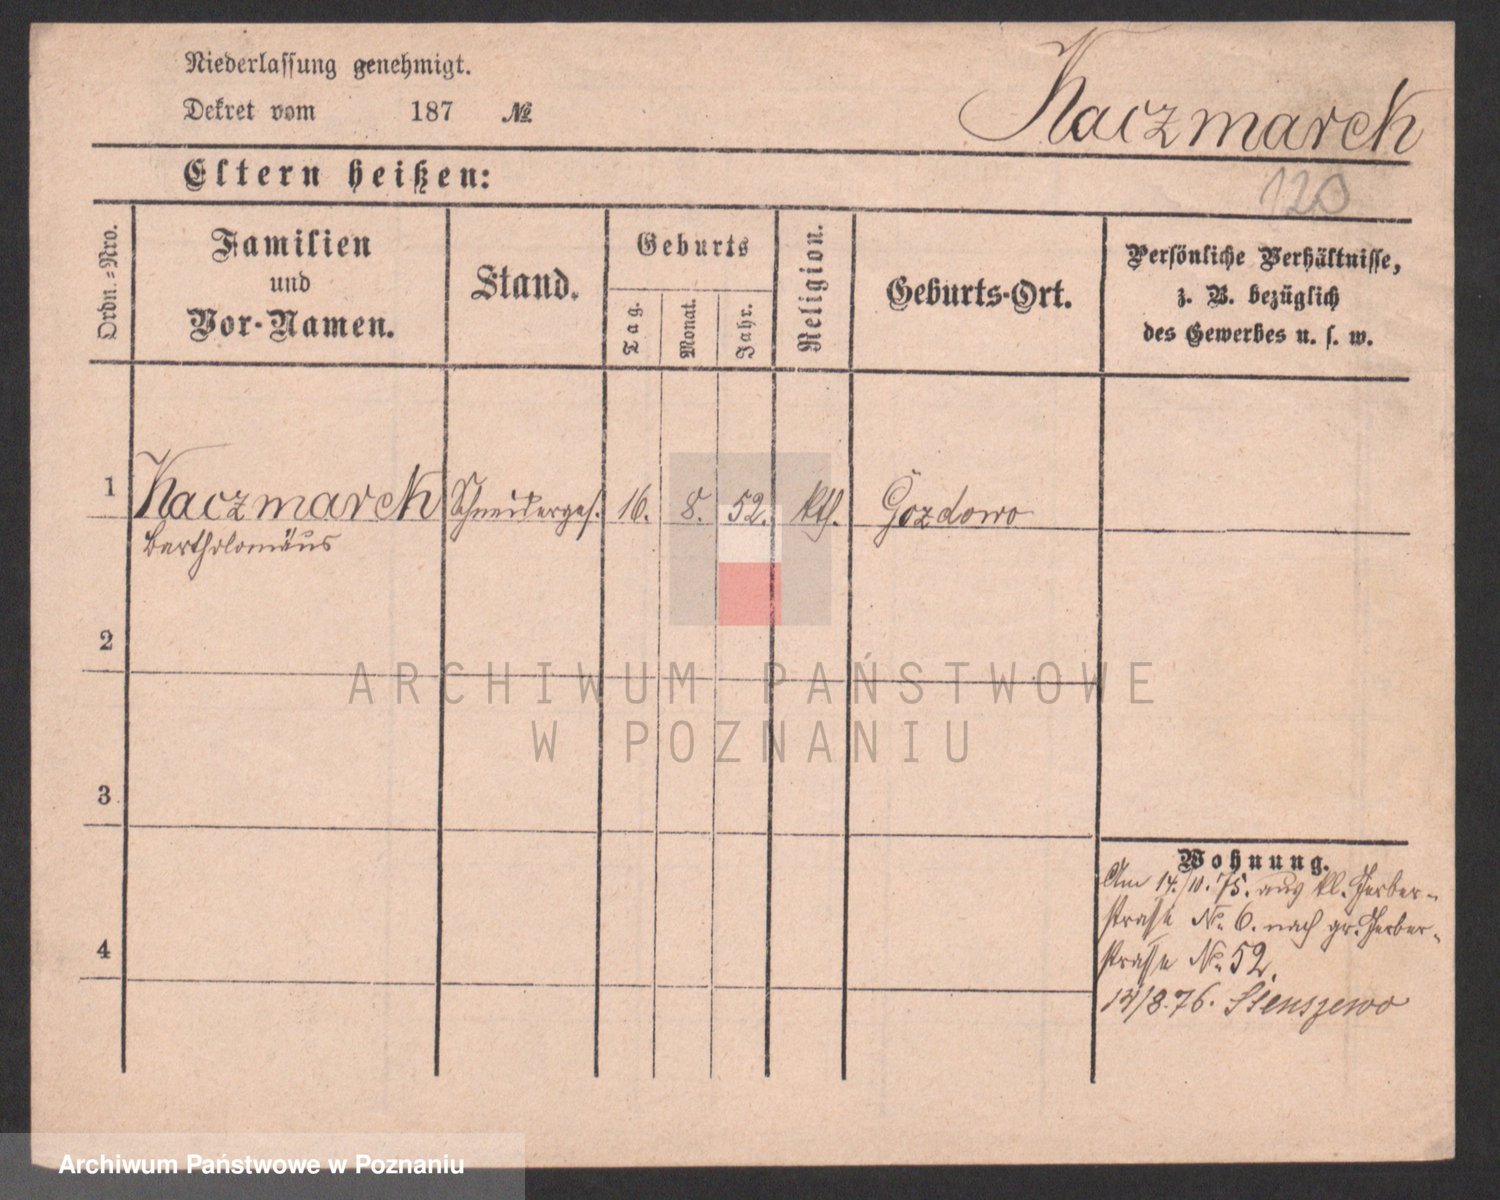 Niederlassung genehmigt.
Dekret vom 187 №
Kaczmarek
Eltern heißen:
120
Ordn.-Nro.
Familien
und
Vor-Namen.
Stand.
Geburts
Tag.
Monat.
Jahr.
Religion.
Geburts-Ort.
Persönliche Verhältnisse,
z. B. bezüglich
des Gewerbes u. s. w.
1 Kaczmarek Schneiderges. 16. 8. 52. kth. Gozdowo
Bartholomäus
2
ARCHIWUM PAŃSTWOWE
W POZNANIU
3
Wohnung.
Am 14./10. 75. aus kl. Gerber-
strasse No. 6. nach gr. Gerber-
strasse No. 52.
4
/8. 76. Stenszewo
Archiwum Państwowe w Poznaniu